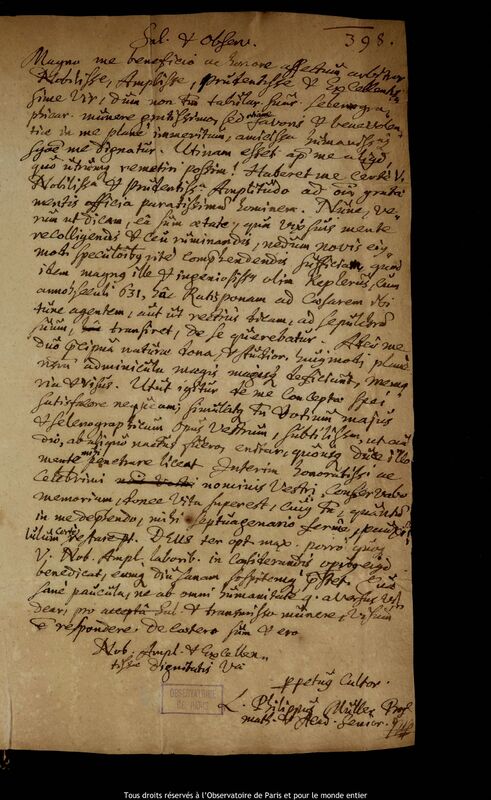 Sal. & Observ.
398.
Magno me beneficio ac honore affectum arbitror
Nobilisse, Amplisse, prudentisse & Excellentis-
sime Vir, dum non tm tabular. suar. Selenogra-
phicar. munere gratissimo, sed etiam favoris & benevolen-
tiae in me planè immeritum,
me dignatur. Utinam esset ap. me aliqd
quo utrumq remetiri possim! Haberet me certè V.
Nobilissa & prudentissa Amplitudo ad oia grata
mentis officia paratissimum hominem. Nunc, ve-
rum ut dicam, ea sum aetate, qua vix suis mente
recolligendis & ceu ruminandis, nedum novis ejus-
modi speculoibus rite comprendendis sufficiam, quod
idem magnus ille & ingeniosissus olim Keplerus, cum
anno seculi 631, hac Ratisponam ad Caesarem ibi
tunc agentem, aut ut rectius dicam, ad sepulchrum
suum, transiret, de se querebatur. Ateo me
duo praecipua naturae bona, & studior. hujusmodi planè
adminicula magis magisq deficiunt, memo-
ria & visus. Utut igitur de me conceptae spei
satisfacere nequeam, simulatq tn Votivum majus
& selenographicum Opus Vestrum, subtilissm, ut au-
dio, absq nactus fuero, enitar, quousq Duce illo
mente penetrare liceat. Interim honoratissi ac
Celebrimi nominis Vestri conservabo
memoriam, donec vita superest, cujus tn, quantum
in me deprehendo, mihi septuagenario fermè, pauxil-
lulum certò restare pt. DEUS ter opt. max. porrò quoq
V. Nob. Ampl. laborib. in considerandis
benedicat, eamq diu sanam sospitemq pstet. Haec
sanè paucula, ne ab omni humanitate aversus vi-
dear, pro acceptâ Sal. & transmisso munere, visum
e respondere. De caetero sum & ero
Nob. Ampl. & Excellen-
tissae dignitatis Vae
ppetuus Cultor.
L. Philippus Müller Prof.
math. & Acad. Senior.
OBSERVATOIRE
DE PARIS
Tous droits réservés à l'Observatoire de Paris et pour le monde entier